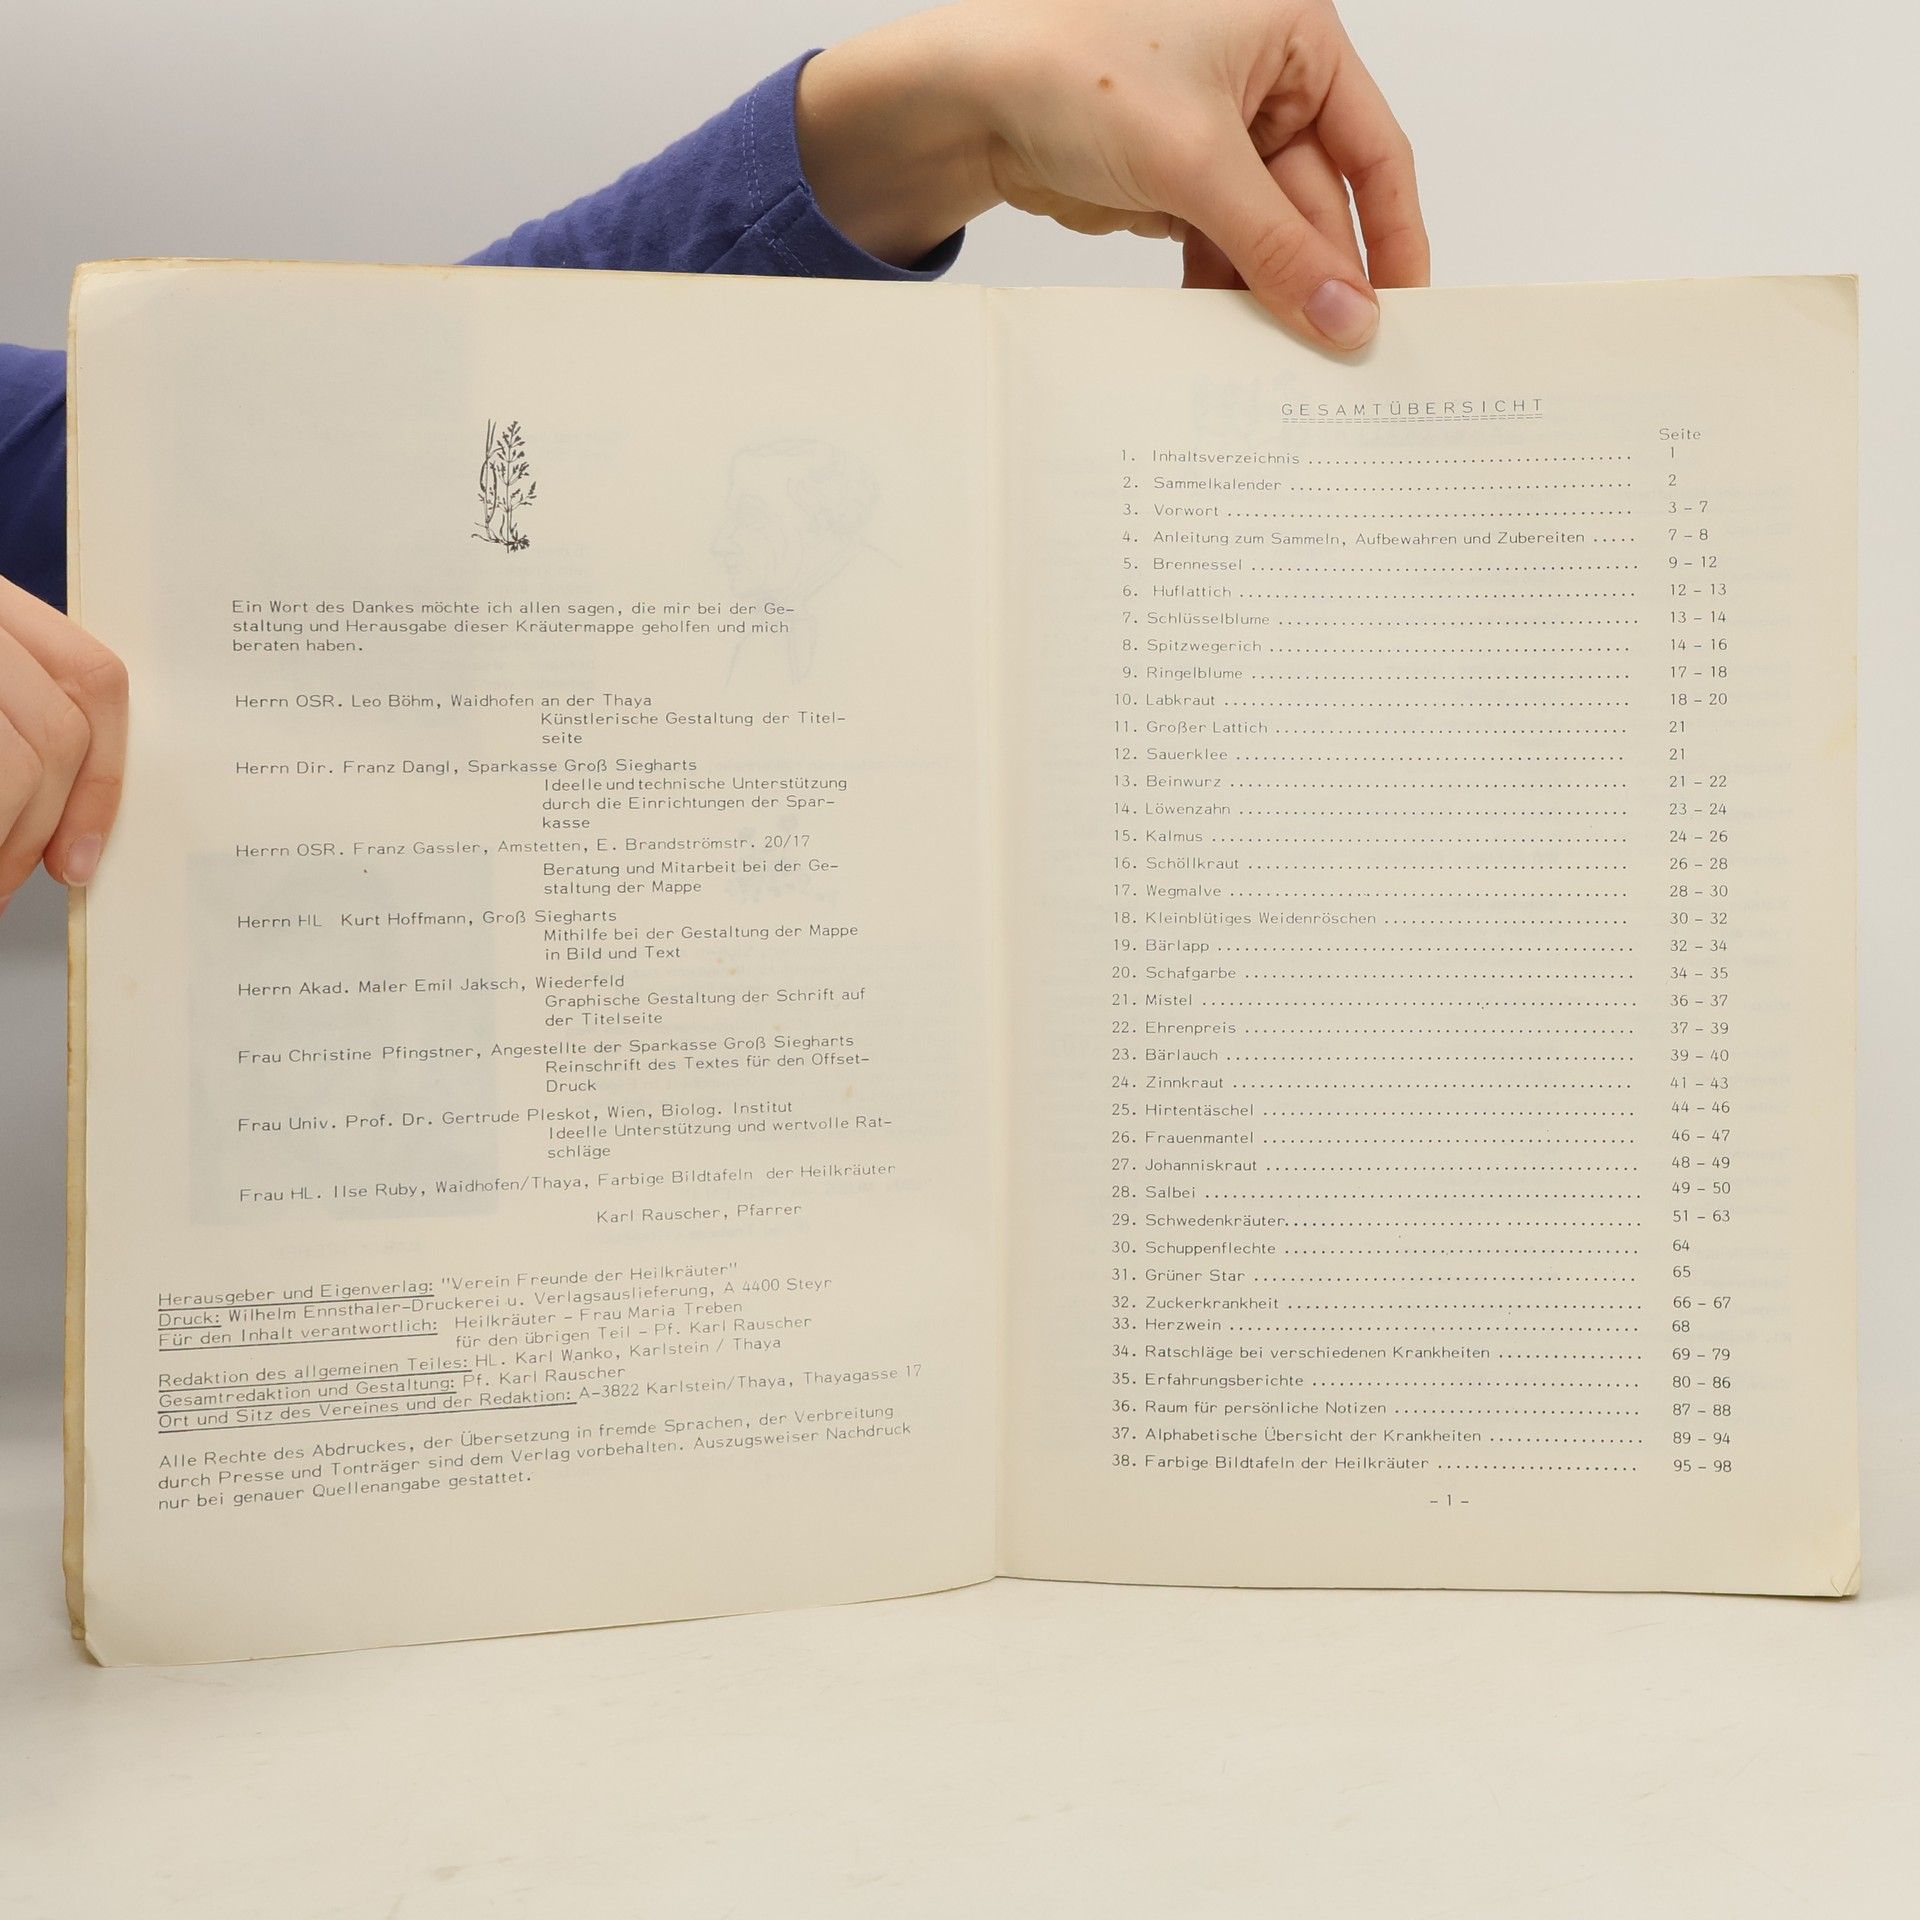 Ein Wort des Dankes möchte ich allen sagen, die mir bei der Ge-
staltung und Herausgabe dieser Kräutermappe geholfen und mich
beraten haben.
Herrn OSR. Leo Böhm, Waidhofen an der Thaya
Künstlerische Gestaltung der Titel-
seite
Herrn Dir. Franz Dangl, Sparkasse Groß Siegharts
Ideelle und technische Unterstützung
durch die Einrichtungen der Spar-
kasse
Herrn OSR. Franz Gassler, Amstetten, E. Brandströmstr. 20/17
Beratung und Mitarbeit bei der Ge-
staltung der Mappe
Herrn HL Kurt Hoffmann, Groß Siegharts
Mithilfe bei der Gestaltung der Mappe
in Bild und Text
Herrn Akad. Maler Emil Jaksch, Wiederfeld
Graphische Gestaltung der Schrift auf
der Titelseite
Frau Christine Pfingstner, Angestellte der Sparkasse Groß Siegharts
Reinschrift des Textes für den Offset-
Druck
Frau Univ. Prof. Dr. Gertrude Pleskot, Wien, Biolog. Institut
Ideelle Unterstützung und wertvolle Rat-
schläge
Frau HL. Ilse Ruby, Waidhofen/Thaya, Farbige Bildtafeln der Heilkräuter
Karl Rauscher, Pfarrer
Herausgeber und Eigenverlag: "Verein Freunde der Heilkräuter"
Druck: Wilhelm Ennsthaler-Druckerei u. Verlagsauslieferung, A 4400 Steyr
Für den Inhalt verantwortlich: Heilkräuter - Frau Maria Treben
für den übrigen Teil - Pf. Karl Rauscher
Redaktion des allgemeinen Teiles: HL. Karl Wanko, Karlstein / Thaya
Gesamtredaktion und Gestaltung: Pf. Karl Rauscher
Ort und Sitz des Vereines und der Redaktion: A-3822 Karlstein/Thaya, Thayagasse 17
Alle Rechte des Abdruckes, der Übersetzung in fremde Sprachen, der Verbreitung
durch Presse und Tonträger sind dem Verlag vorbehalten. Auszugsweiser Nachdruck
nur bei genauer Quellenangabe gestattet.
GESAMTÜBERSICHT
Seite
1. Inhaltsverzeichnis .................................... 1
2. Sammelkalender .................................... 2
3. Vorwort .................................... 3 - 7
4. Anleitung zum Sammeln, Aufbewahren und Zubereiten ..... 7 - 8
5. Brennessel .................................... 9 - 12
6. Huflattich .................................... 12 - 13
7. Schlüsselblume .................................... 13 - 14
8. Spitzwegerich .................................... 14 - 16
9. Ringelblume .................................... 17 - 18
10. Labkraut .................................... 18 - 20
11. Großer Lattich .................................... 21
12. Sauerklee .................................... 21
13. Beinwurz .................................... 21 - 22
14. Löwenzahn .................................... 23 - 24
15. Kalmus .................................... 24 - 26
16. Schöllkraut .................................... 26 - 28
17. Wegmalve .................................... 28 - 30
18. Kleinblütiges Weidenröschen .......................... 30 - 32
19. Bärlapp .................................... 32 - 34
20. Schafgarbe .................................... 34 - 35
21. Mistel .................................... 36 - 37
22. Ehrenpreis .................................... 37 - 39
23. Bärlauch .................................... 39 - 40
24. Zinnkraut .................................... 41 - 43
25. Hirtentäschel .................................... 44 - 46
26. Frauenmantel .................................... 46 - 47
27. Johanniskraut .................................... 48 - 49
28. Salbei .................................... 49 - 50
29. Schwedenkräuter.................................... 51 - 63
30. Schuppenflechte .................................... 64
31. Grüner Star .................................... 65
32. Zuckerkrankheit .................................... 66 - 67
33. Herzwein .................................... 68
34. Ratschläge bei verschiedenen Krankheiten ................ 69 - 79
35. Erfahrungsberichte .................................... 80 - 86
36. Raum für persönliche Notizen ........................... 87 - 88
37. Alphabetische Übersicht der Krankheiten ................. 89 - 94
38. Farbige Bildtafeln der Heilkräuter ....................... 95 - 98
- 1 -